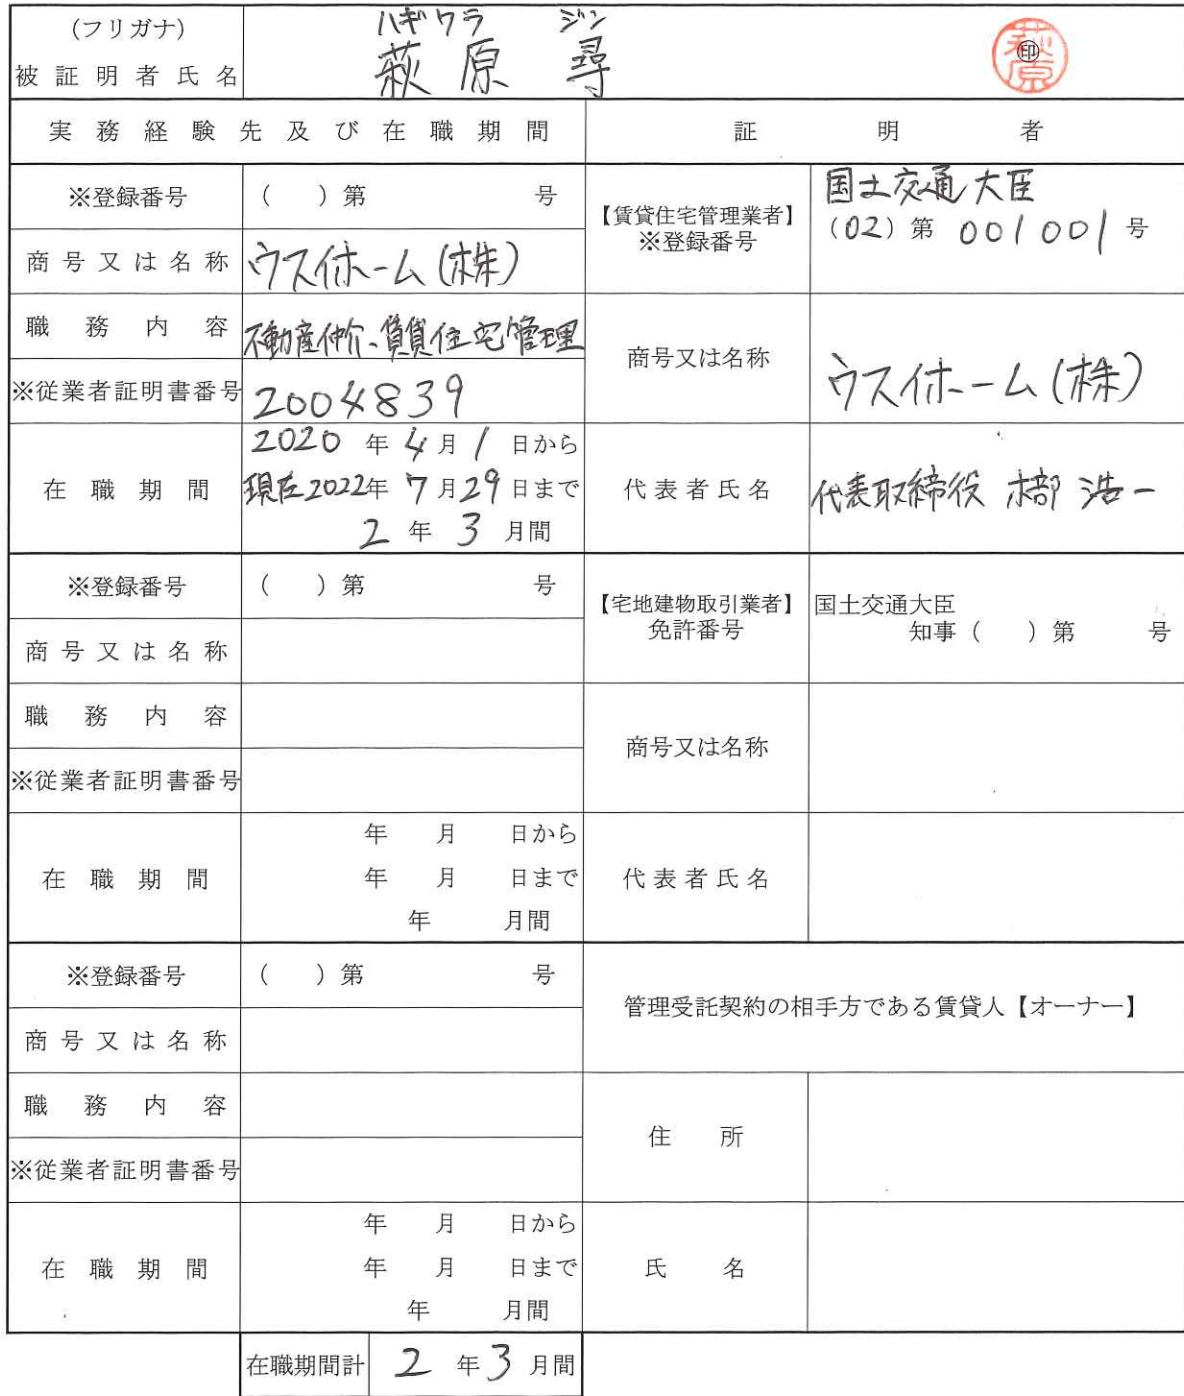 (フリガナ) ハギワラ ジン
被証明者氏名 萩原 尋 ㊞ 萩原
実務経験先及び在職期間 証明者
※登録番号 ( ) 第 号
【賃貸住宅管理業者】
※登録番号
国土交通大臣
(02) 第 001001 号
商号又は名称 ウスイホーム(株)
職務内容 不動産仲介、賃貸住宅管理
商号又は名称 ウスイホーム(株)
※従業者証明書番号 2004839
在職期間
2020 年 4 月 1 日から
現在2022年 7 月29 日まで
2 年 3 月間
代表者氏名 代表取締役 木部 浩一
※登録番号 ( ) 第 号
【宅地建物取引業者】
免許番号
国土交通大臣
知事 ( ) 第 号
商号又は名称
職務内容
商号又は名称
※従業者証明書番号
在職期間
年 月 日から
年 月 日まで
年 月間
代表者氏名
※登録番号 ( ) 第 号
管理受託契約の相手方である賃貸人【オーナー】
商号又は名称
職務内容
住所
※従業者証明書番号
在職期間
年 月 日から
年 月 日まで
年 月間
氏名
在職期間計 2 年 3 月間